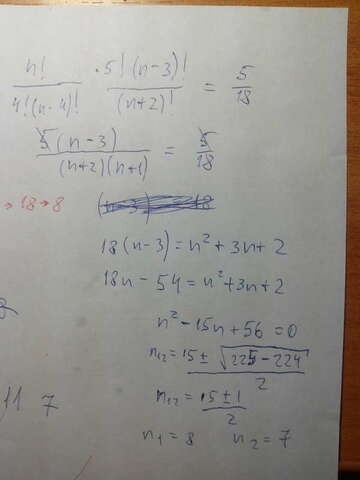 n! / 4!(n-4)! · 5!(n-3)! / (n+2)! = 5/18
5(n-3) / (n+2)(n+1) = 5/18
→ 18 → 8
18(n-3) = n² + 3n + 2
18n - 54 = n² + 3n + 2
n² - 15n + 56 = 0
n₁₂ = 15 ± √(225 - 224) / 2
n₁₂ = 15 ± 1 / 2
n₁ = 8 n₂ = 7
11 7